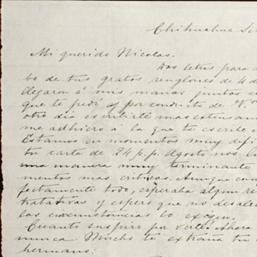 Chihuahua
Mi querido Nicolas.
Dos letras para
bo de tus gratos renglones de 4 d
llegaron á mis manos juntas co
que te pedí y por conducto de
otro dia escribirte mas extensam
me adhiero á la que te escribe
Estamos en momentos muy difi
tu carta de 24 p.p. Agosto nos
una manera muy terminante
mentos mas criticos. Aunque
fectamente todo, esperaba algun
tratativas y espero que no desale
las circunstancias lo exijan.
Cuanto suspiro por verte. Ahora
nunca Mincho te extraña tu
hermano: